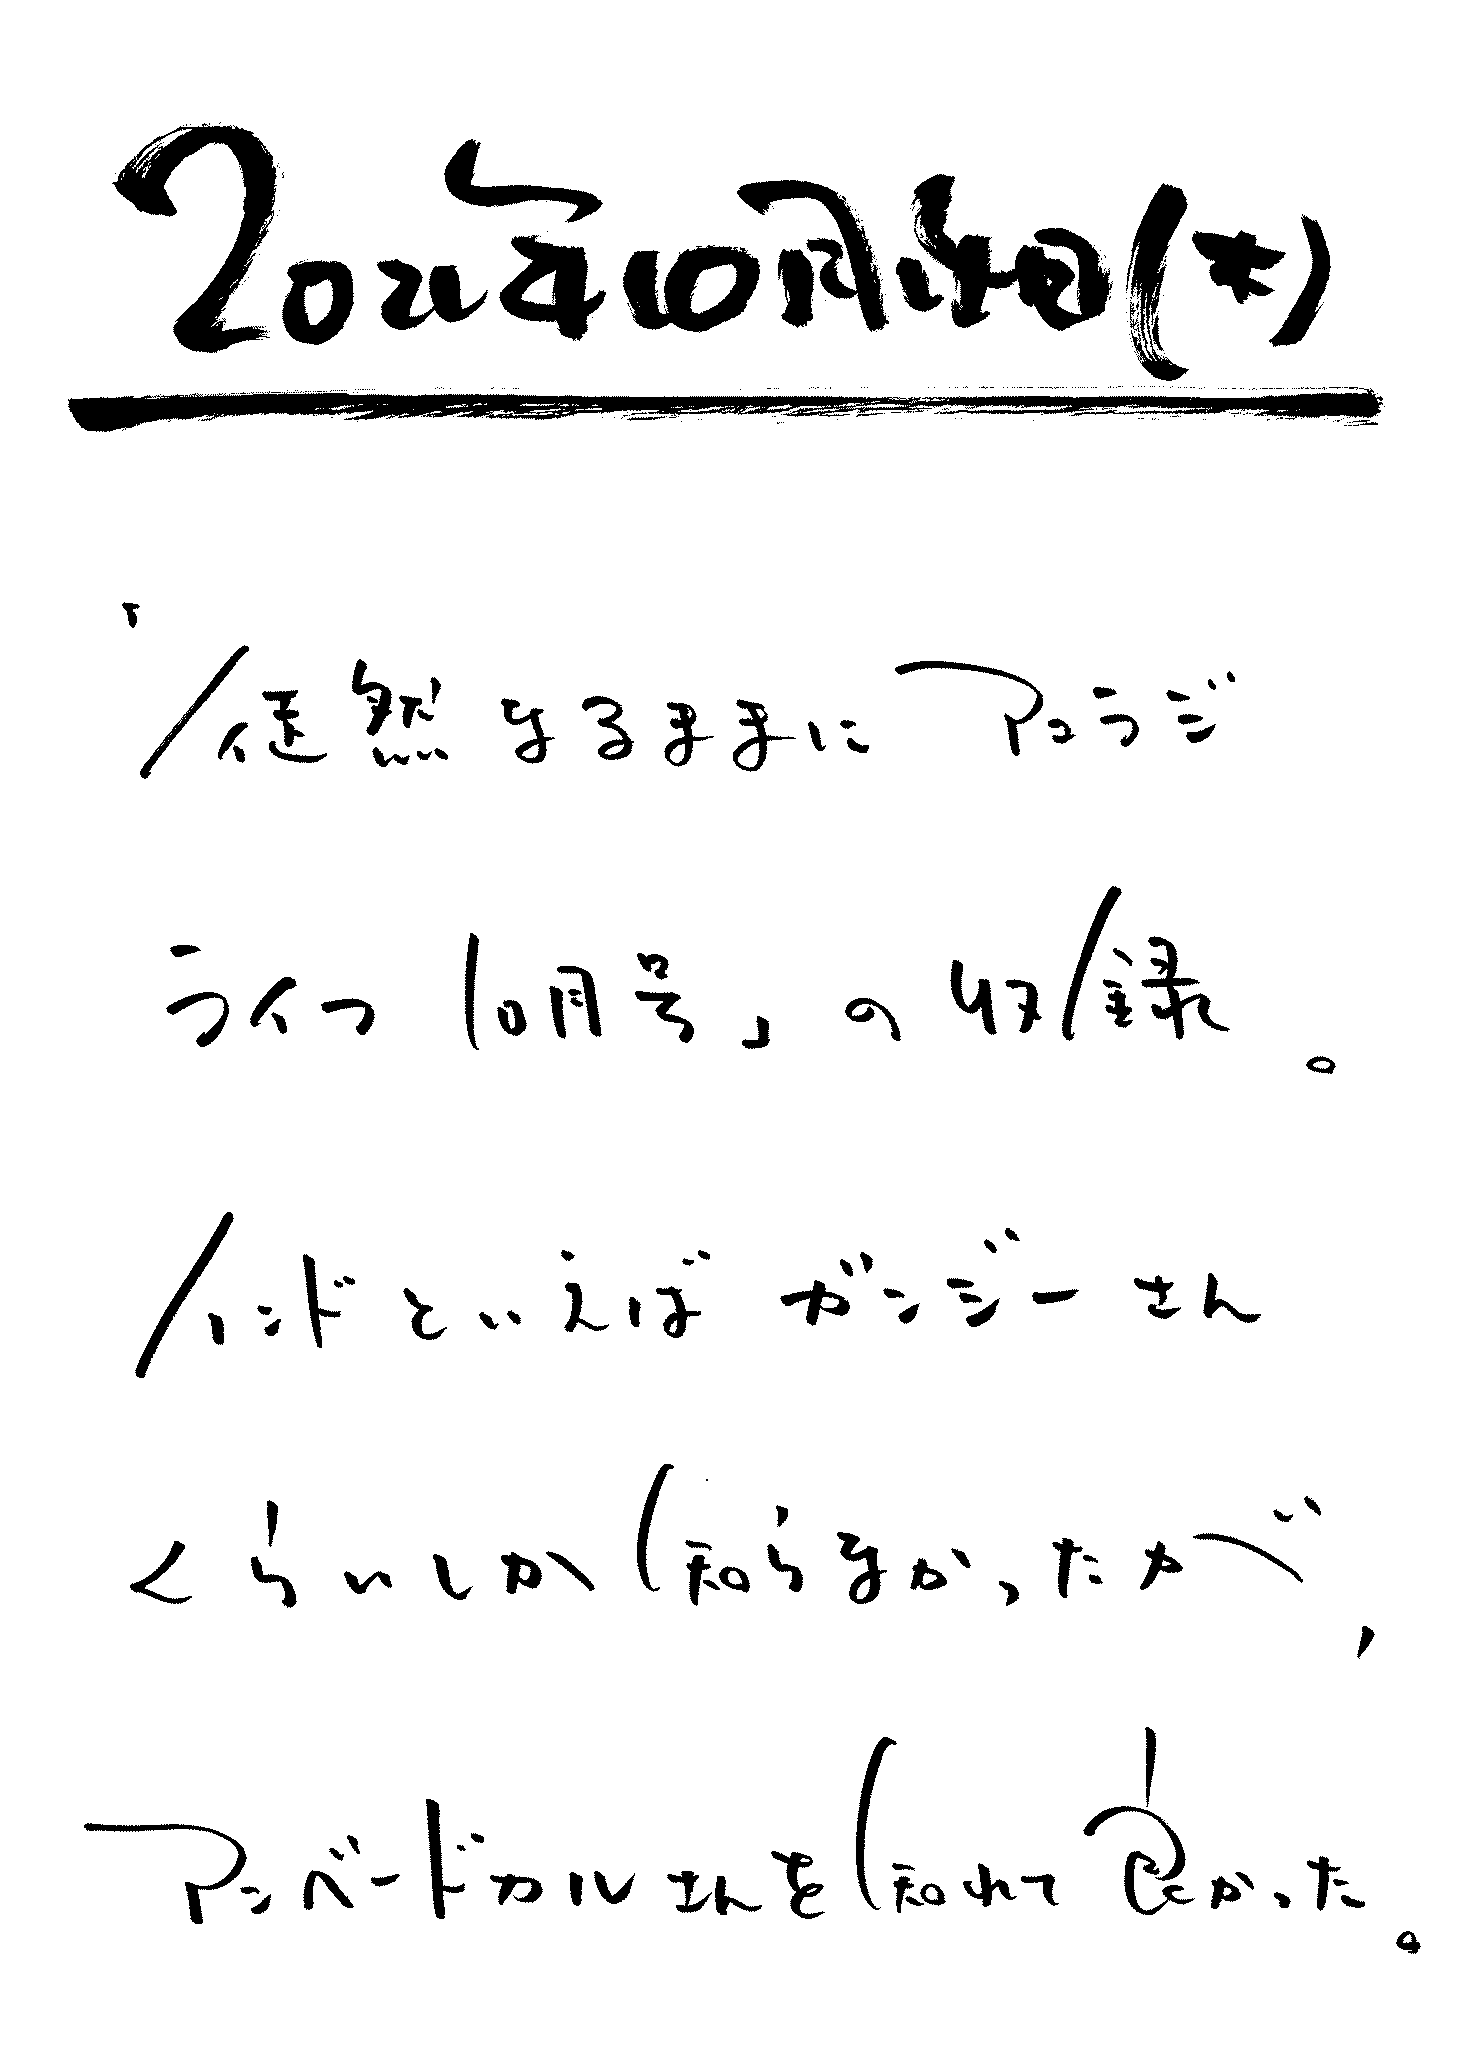 2021年10月14日(木)
「徒然なるままにアコラジ
ライフ10月号」の収録。
インドといえばガンジーさん
くらいしか知らなかったが,
アンベードカルさんを知れて良かった。